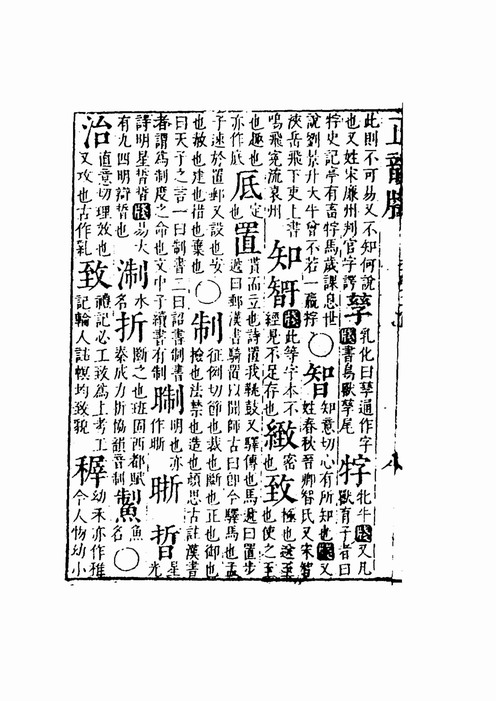 正韻牋
此則不可易又不知何說
也又姓宋廉州判官字諤
孳
乳化曰孳通作字
牋書鳥獸孳尾
牸
牝牛牋又凡
獸有子者曰
牸史記亭有畜牸馬歲課息世
說劉景升大牛曾不若一羸牸
○智
知意切心有所知也牋又
姓春秋晉卿智氏又宋智
浹岳飛下吏上書
鳴飛寃流袁州
知
牋此等字本不
經見不足存也
緻
密也
致
極也送至
也使之至
也趣也
亦作厎
底
定也
置
而立也詩置我鞉鼓又驛傳也馬遞曰置步
遞曰郵漢書騎置以聞師古曰卽今驛馬也孟
子速於置郵又設也安
也赦也建也措也棄也
○制
征例切節也裁也斷也正也御也
檢也法禁也造也顏思古註漢書
曰天子之言一曰制書二曰詔書制書
者謂爲制度之命也文中子續書有制
明也亦
作晣
晣晢
星光
詩明星晢晢牋易大
有九四明辯晢也
淛
水名
折
斷之也班固西都賦
秦成力折協韻音制
魚名
○
治
直意切理效也
又攻也古作乿
致
禮記必工致爲上考工
記輪人註輮均致貌
稺
幼禾亦作稚
今人物幼小